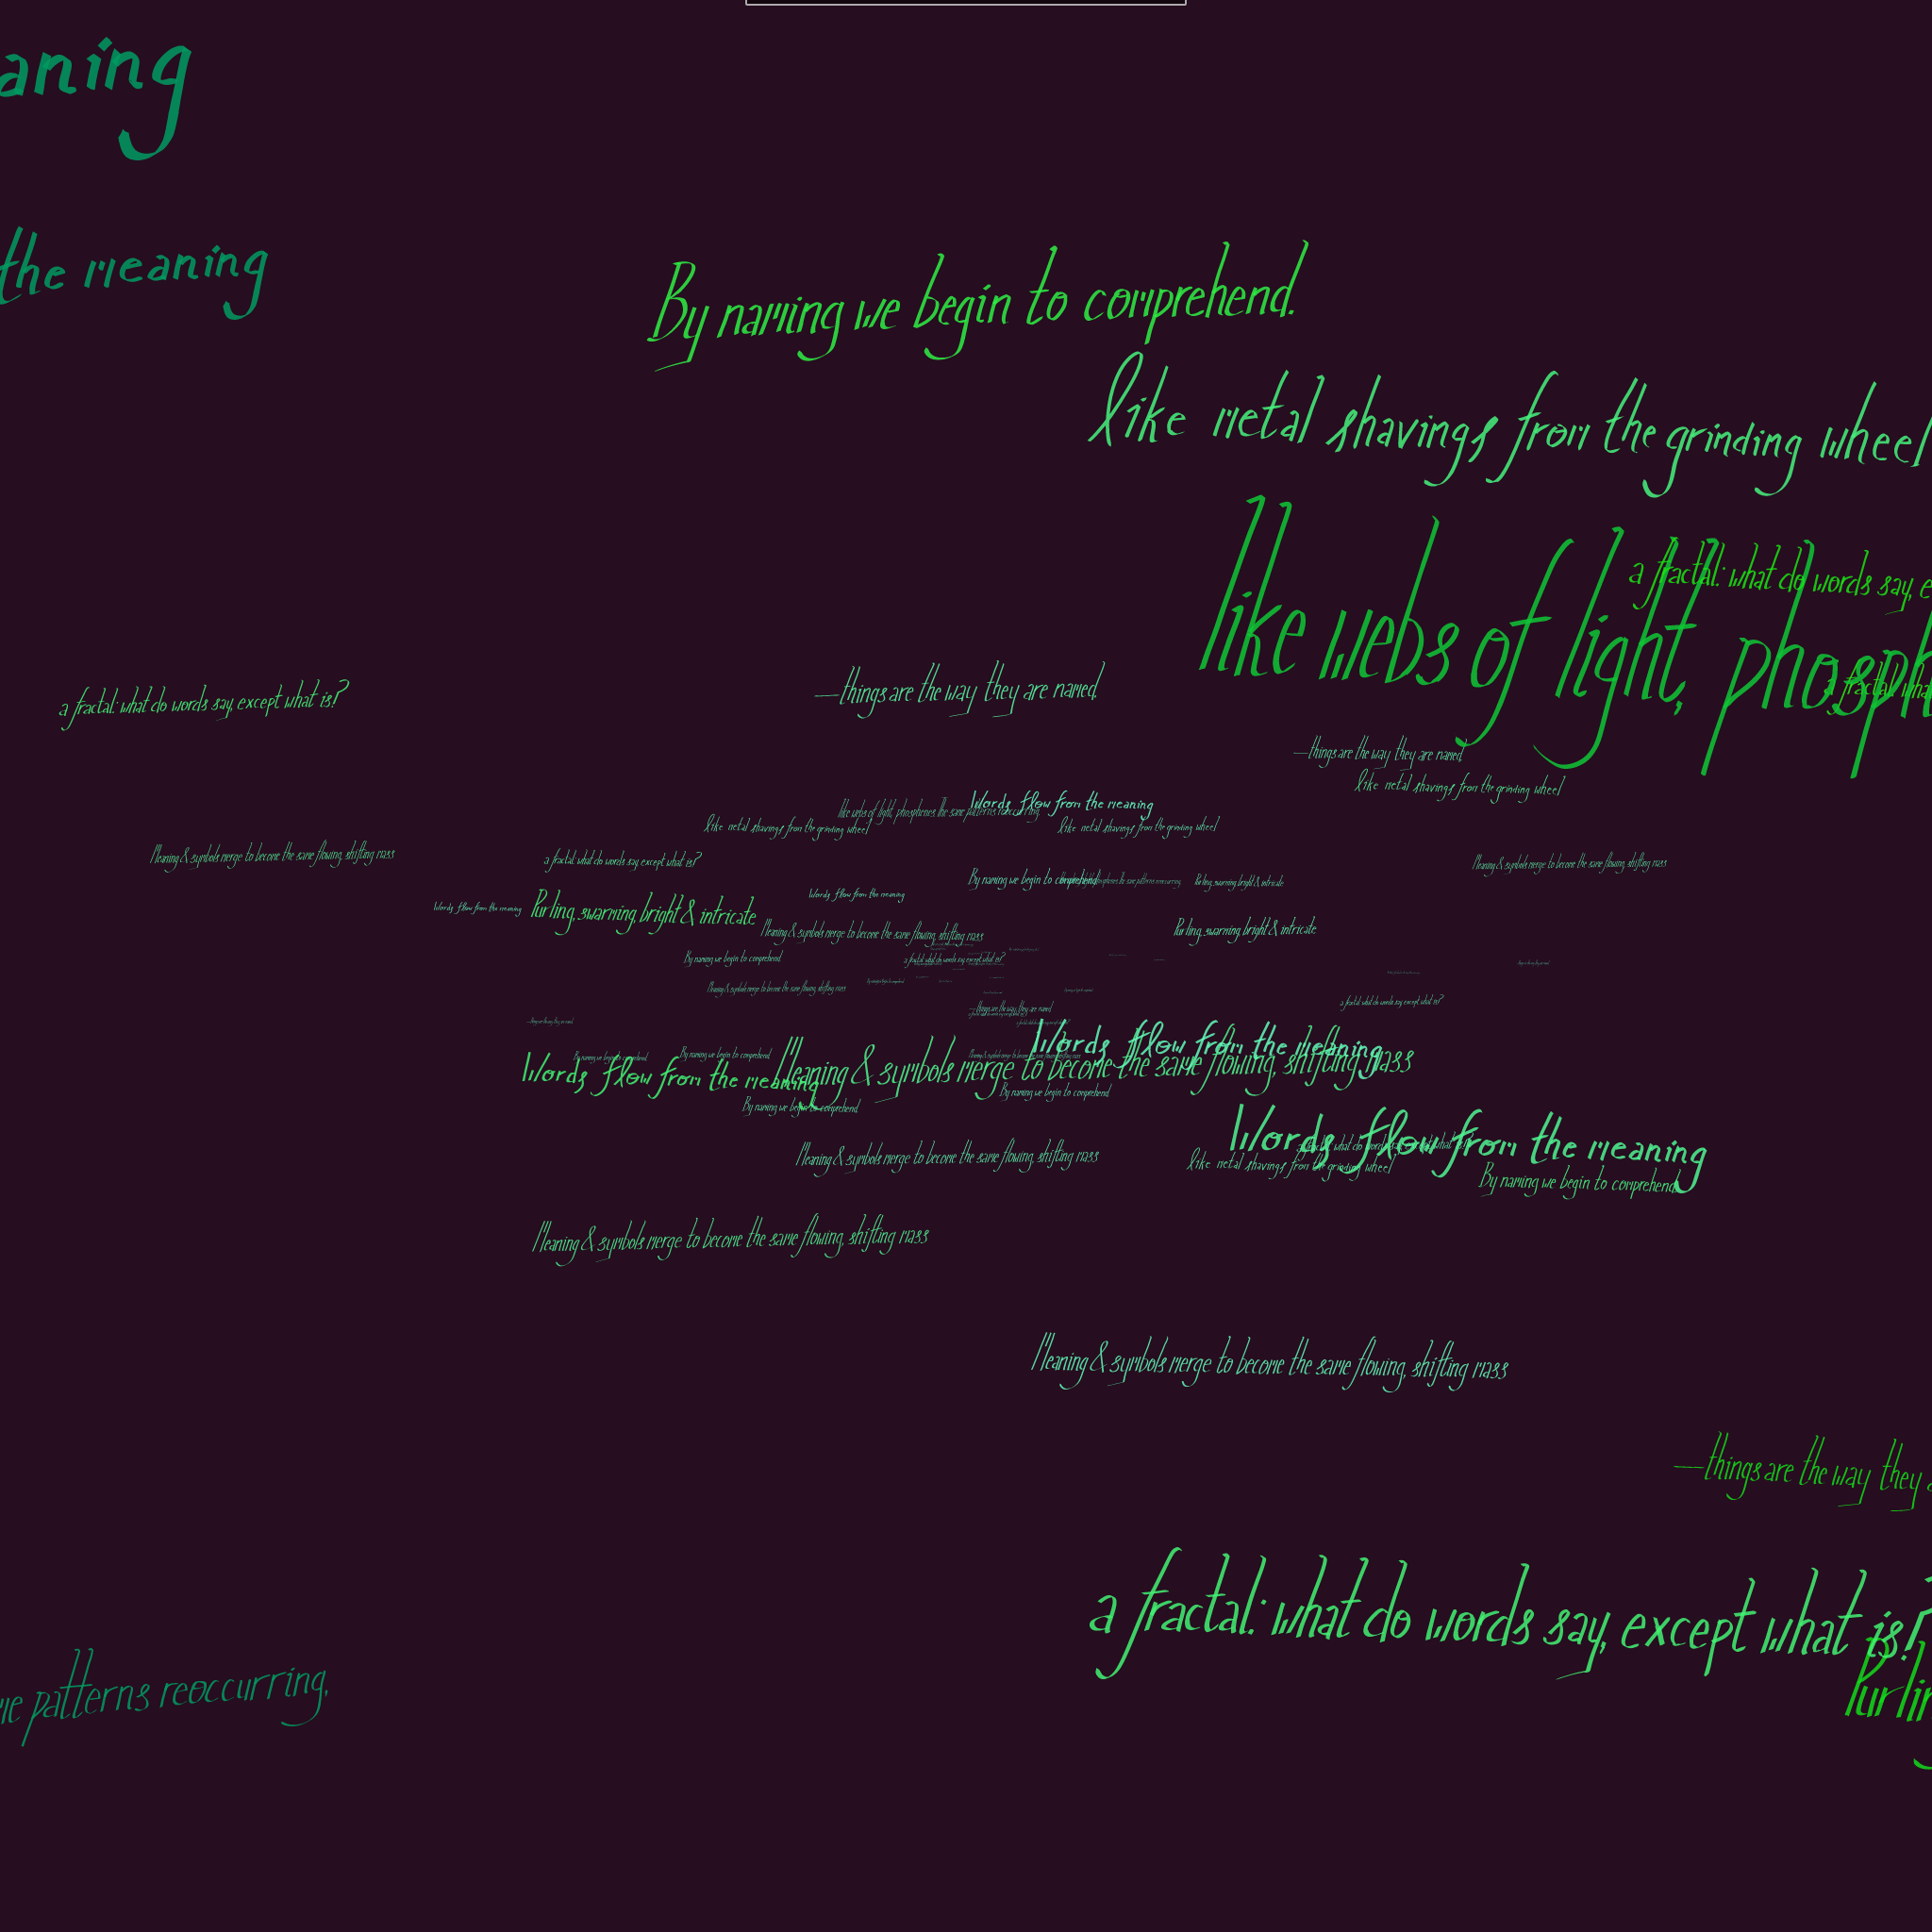 aning
the meaning
By naming we begin to comprehend.
like metal shavings from the grinding wheel
a fractal: what do words say, e
like webs of light, phosph
a fractal: what
—things are the way they are named.
a fractal: what do words say, except what is?
—things are the way they are named,
like metal shavings from the grinding wheel
Words flow from the meaning
like webs of light, phosphenes. The same patterns reoccurring,
like metal shavings from the grinding wheel
like metal shavings from the grinding wheel
Meaning & symbols merge to become the same flowing, shifting mass
a fractal: what do words say, except what is?
Meaning & symbols merge to become the same flowing, shifting mass
By naming we begin to comprehend.
Purling, swarming, bright & intricate
Words flow from the meaning
Words flow from the meaning
Purling, swarming, bright & intricate
Purling, swarming, bright & intricate
Meaning & symbols merge to become the same flowing, shifting mass
By naming we begin to comprehend.
a fractal: what do words say, except what is?
Meaning & symbols merge to become the same flowing, shifting mass
a fractal: what do words say, except what is?
—things are the way they are named.
Words flow from the meaning
By naming we begin to comprehend.
By naming we begin to comprehend.
Meaning & symbols merge to become the same flowing, shifting mass
Words flow from the meaning
By naming we begin to comprehend.
By naming we begin to comprehend.
Words flow from the meaning
a fractal: what do words say, except what is?
Meaning & symbols merge to become the same flowing, shifting mass
like metal shavings from the grinding wheel
By naming we begin to comprehend.
Meaning & symbols merge to become the same flowing, shifting mass
Meaning & symbols merge to become the same flowing, shifting mass
—things are the way they a
a fractal: what do words say, except what is?
me patterns reoccurring,
Purlin